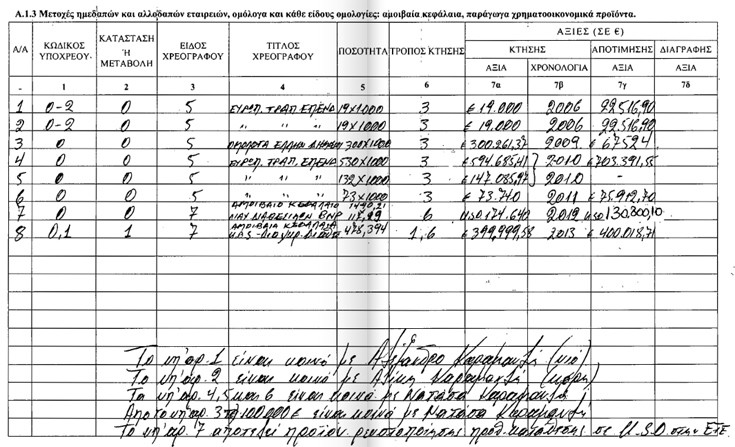 Α.1.3 Μετοχές ημεδαπών και αλλοδαπών εταιρειών, ομόλογα και κάθε είδους ομολογίες: αμοιβαία κεφάλαια, παράγωγα χρηματοοικονομικά προϊόντα.
ΑΞΙΕΣ (ΣΕ €)
Α/Α ΚΩΔΙΚΟΣ ΥΠΟΧΡΕΟΥ ΚΑΤΑΣΤΑΣΗ Ή ΜΕΤΑΒΟΛΗ ΕΙΔΟΣ ΧΡΕΟΓΡΑΦΟΥ ΤΙΤΛΟΣ ΧΡΕΟΓΡΑΦΟΥ ΠΟΣΟΤΗΤΑ ΤΡΟΠΟΣ ΚΤΗΣΗΣ ΚΤΗΣΗΣ ΑΠΟΤΙΜΗΣΗΣ ΔΙΑΓΡΑΦΗΣ
ΑΞΙΑ ΧΡΟΝΟΛΟΓΙΑ ΑΞΙΑ ΑΞΙΑ
- 1 2 3 4 5 6 7α 7β 7γ 7δ
1 0-2 0 5 ΕΥΡΩΠ. ΤΡΑΠ. ΕΠΕΝΔ 19x1000 3 € 19.000 2006 22516,90
2 0-2 0 5 " " 19x1000 3 € 19.000 2006 22516,90
3 0 0 5 ΟΜΟΛΟΓΑ ΕΛΛΗΝ ΔΗΜΟΣΙΟ 300x1000 3 € 300.261,37 2009
4 0 0 5 ΕΥΡΩΠ. ΤΡΑΠ. ΕΠΕΝΔ 530x1000 3 € 594.685,41 2010 € 703.391,58
5 0 0 5 " " 132x1000 3 € 147.085,97 2010 -
6 0 0 5 " " 73x1000 3 € 73.740 2011 € 75.912,70
7 0 0 7 ΑΜΟΙΒΑΙΟ ΚΕΦΑΛΑΙΟ ΔΙΑΧ ΔΙΑΘΕΣΙΜΩΝ BNP 6 USD 174.640 2012 USD 130.800,10
8 0,1 1 7 ΑΜΟΙΒΑΙΑ ΚΕΦΑΛΑΙΑ 478,394 1,6 € 399.999,58 2013 € 400.018,71
Το υπ'αρ. 1 είναι κοινό με Αλέξανδρο Καραμανλή (υιό)
Το υπ'αρ. 2 είναι κοινό με Αλίκη Καραμανλή (κόρη)
Τα υπ'αρ. 4, 5 και 6 είναι κοινά με Νατάσα Καραμανλή
Από το υπ'αρ. 3 τα 100.000 € είναι κοινά με Νατάσα Καραμανλή
Το υπ'αρ. 7 αποτελεί προϊόν ρευστοποίησης προθ. κατάθεσης σε U.S.D στην ΕΤΕ.